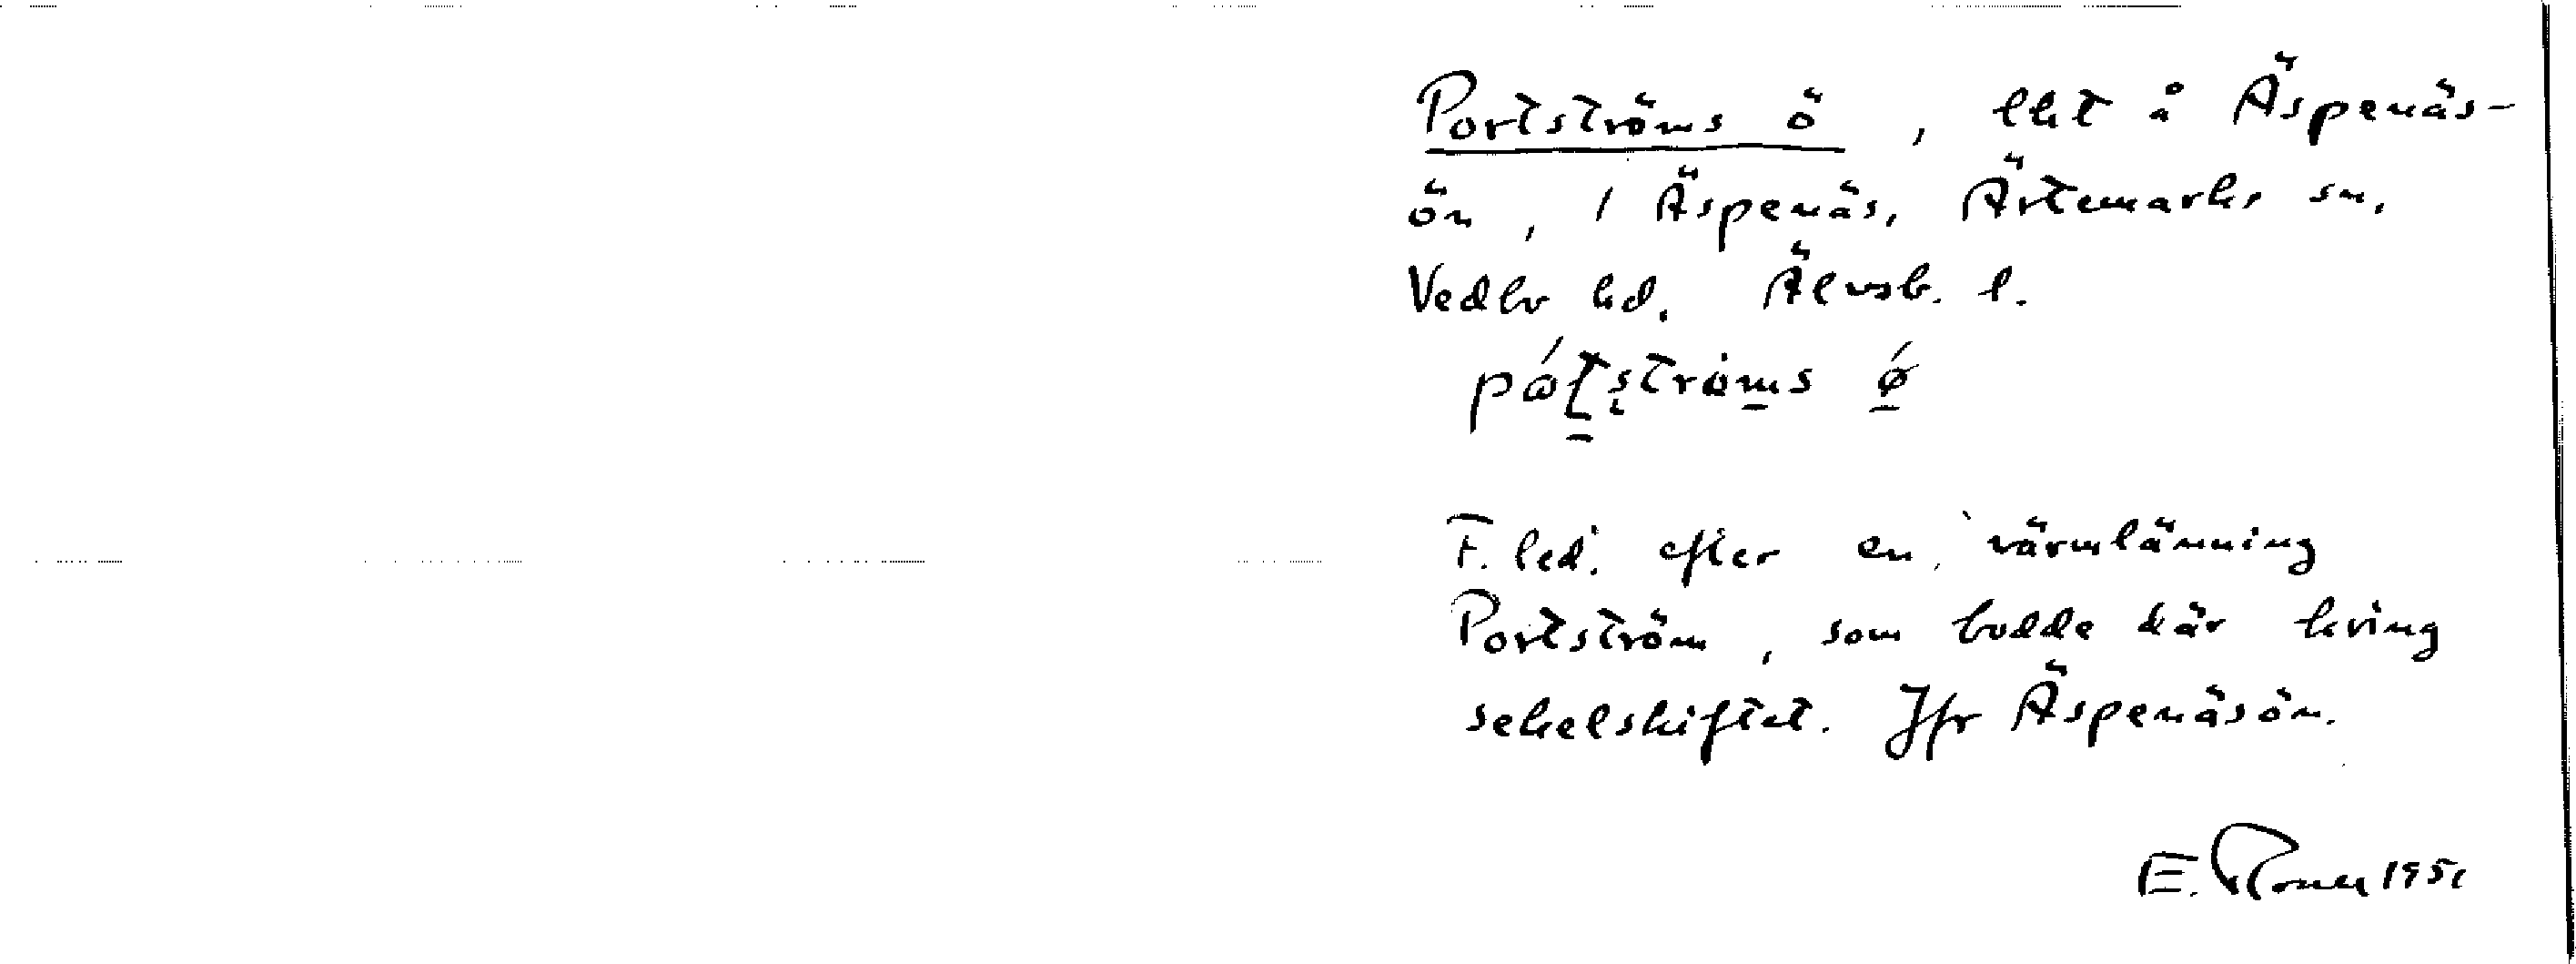 Portströms ö, lht å Äspenäs-
ön, 1 Äspenäs, Ärtemarks sn,
Vedbo hd. Älvsb. l.
F. led. efter en värmlänning
Portström, som bodde där kring
sekelskiftet. Jfr Äspenäsön.
E. 1951